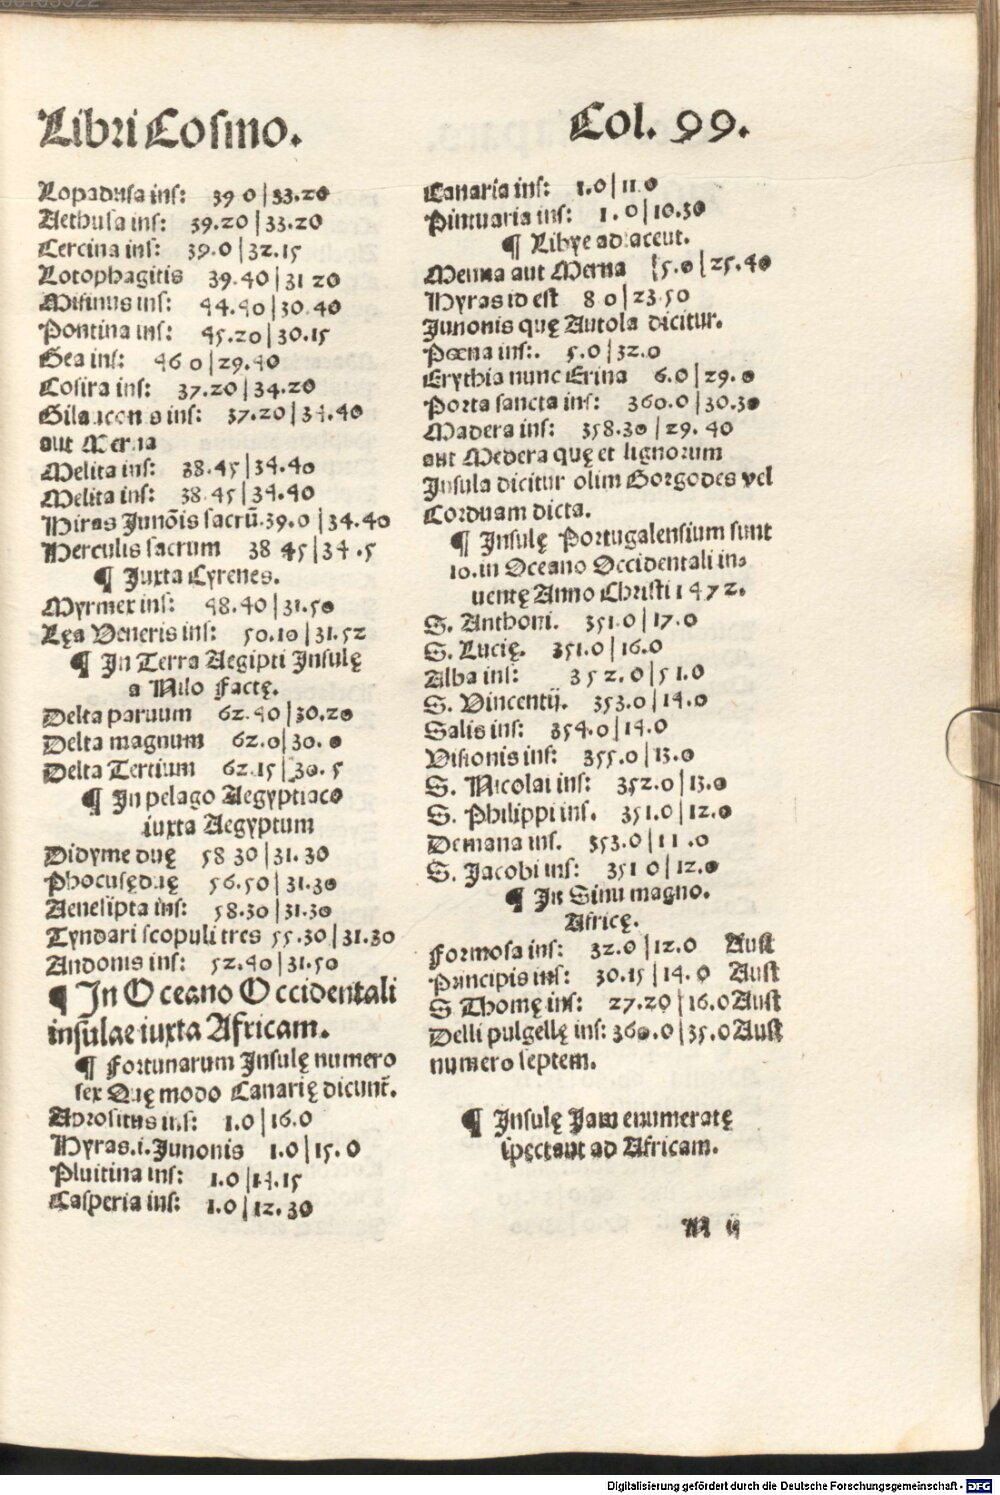 Libri Cosmo.
Col. 99.
Lopadusa ins: 39 0|33.20
Aethusa ins: 39.20|33.20
Cercina ins: 39.0|32.15
Lotophagitis 39.40|31 20
Misinus ins: 44.40|30.40
Pontina ins: 45.20|30.15
Gea ins: 46 0|29.40
Cosira ins: 37.20|34.20
ins: 37.20|34.40
aut Merna
Melita ins: 38.45|34.40
Melita ins: 38.45|34.40
Hiras Junõis sacrũ.39.0|34.40
Herculis sacrum 38 45|34.5
¶ Juxta Cyrenes.
Myrmex ins: 48.40|31.50
Lęa Veneris ins: 50.10|31.52
¶ In Terra Aegipti Insulę
a Nilo Factę.
Delta paruum 62.40|30.20
Delta magnum 62.0|30.0
Delta Tertium 62.15|30.5
¶ In pelago Aegyptiaco
iuxta Aegyptum
Didyme duę 58 30|31.30
Phocusęduę 56.50|31.30
Aenesipta ins: 58.30|31.30
Tyndari scopuli tres 55.30|31.30
Andonis ins: 52.40|31.50
¶ In Oceano Occidentali
insulae iuxta Africam.
¶ Fortunarum Insulę numero
sex Quę modo Canarię dicunt̃.
Aprositus ins: 1.0|16.0
Hyras.i.Junonis 1.0|15.0
Pluitina ins: 1.0|14.15
Casperia ins: 1.0|12.30
Canaria ins: 1.0|11 0
Pintuaria ins: 1.0|10.30
¶ Libye adiacent.
Menna aut Merna 5.0|25.40
Hyras id est 8 0|23.50
Junonis quę Autola dicitur.
Pœna ins:. 5.0|32.0
Erythia nunc Erina 6.0|29.0
Porta sancta ins: 360.0|30.30
Madera ins: 358.30|29.40
aut Medera quę et lignorum
Insula dicitur olim Gorgodes vel
Corduam dicta.
¶ Insulę Portugalensium sunt
10.in Oceano Occidentali in⸗
uentę Anno Christi 1472.
S. Anthoni. 351.0|17.0
S. Lucię. 351.0|16.0
Alba ins: 352.0|51.0
S. Vincentij. 353.0|14.0
Salis ins: 354.0|14.0
Visionis ins: 355.0|13.0
S. Nicolai ins: 352.0|13.0
S. Philippi ins. 351.0|12.0
Demana ins. 353.0|11.0
S. Jacobi ins: 351 0|12.0
¶ In Sinu magno.
Africę.
Formosa ins: 32.0|12.0 Aust
Principis ins: 30.15|14.0 Aust
S Thomę ins: 27.20|16.0 Aust
Delli pulgellę ins: 360.0|35.0 Aust
numero septem.
¶ Insulę Jam enumeratę
spectant ad Africam.
M ij
Digitalisierung gefördert durch die Deutsche Forschungsgemeinschaft - DFG